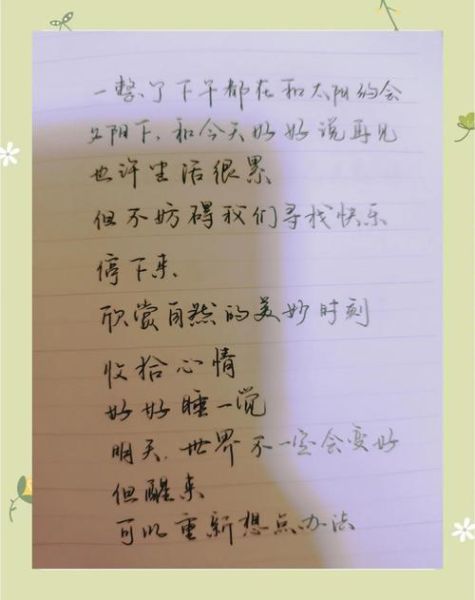 一整个下午都在和太阳约会
夕阳下,和今天好好说再见
也许生活很累
但不妨碍我们寻找快乐
停下来
欣赏自然的美妙时刻
收拾心情
好好睡一觉
明天,世界不一定会变好
但醒来
可以重新想点办法